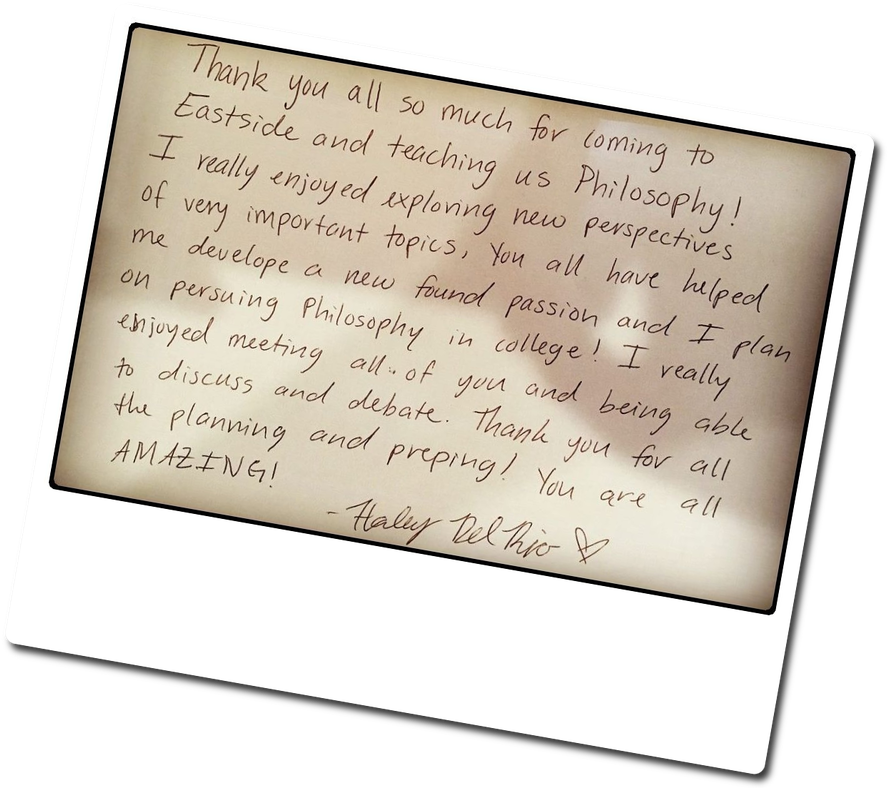 Thank you all so much for coming to
Eastside and teaching us Philosophy!
I really enjoyed exploring new perspectives
of very important topics. You all have helped
me develope a new found passion and I plan
on persuing Philosophy in college! I really
enjoyed meeting all of you and being able
to discuss and debate. Thank you for all
the planning and preping! You are all
AMAZING!
- Haley Del Rio ♡